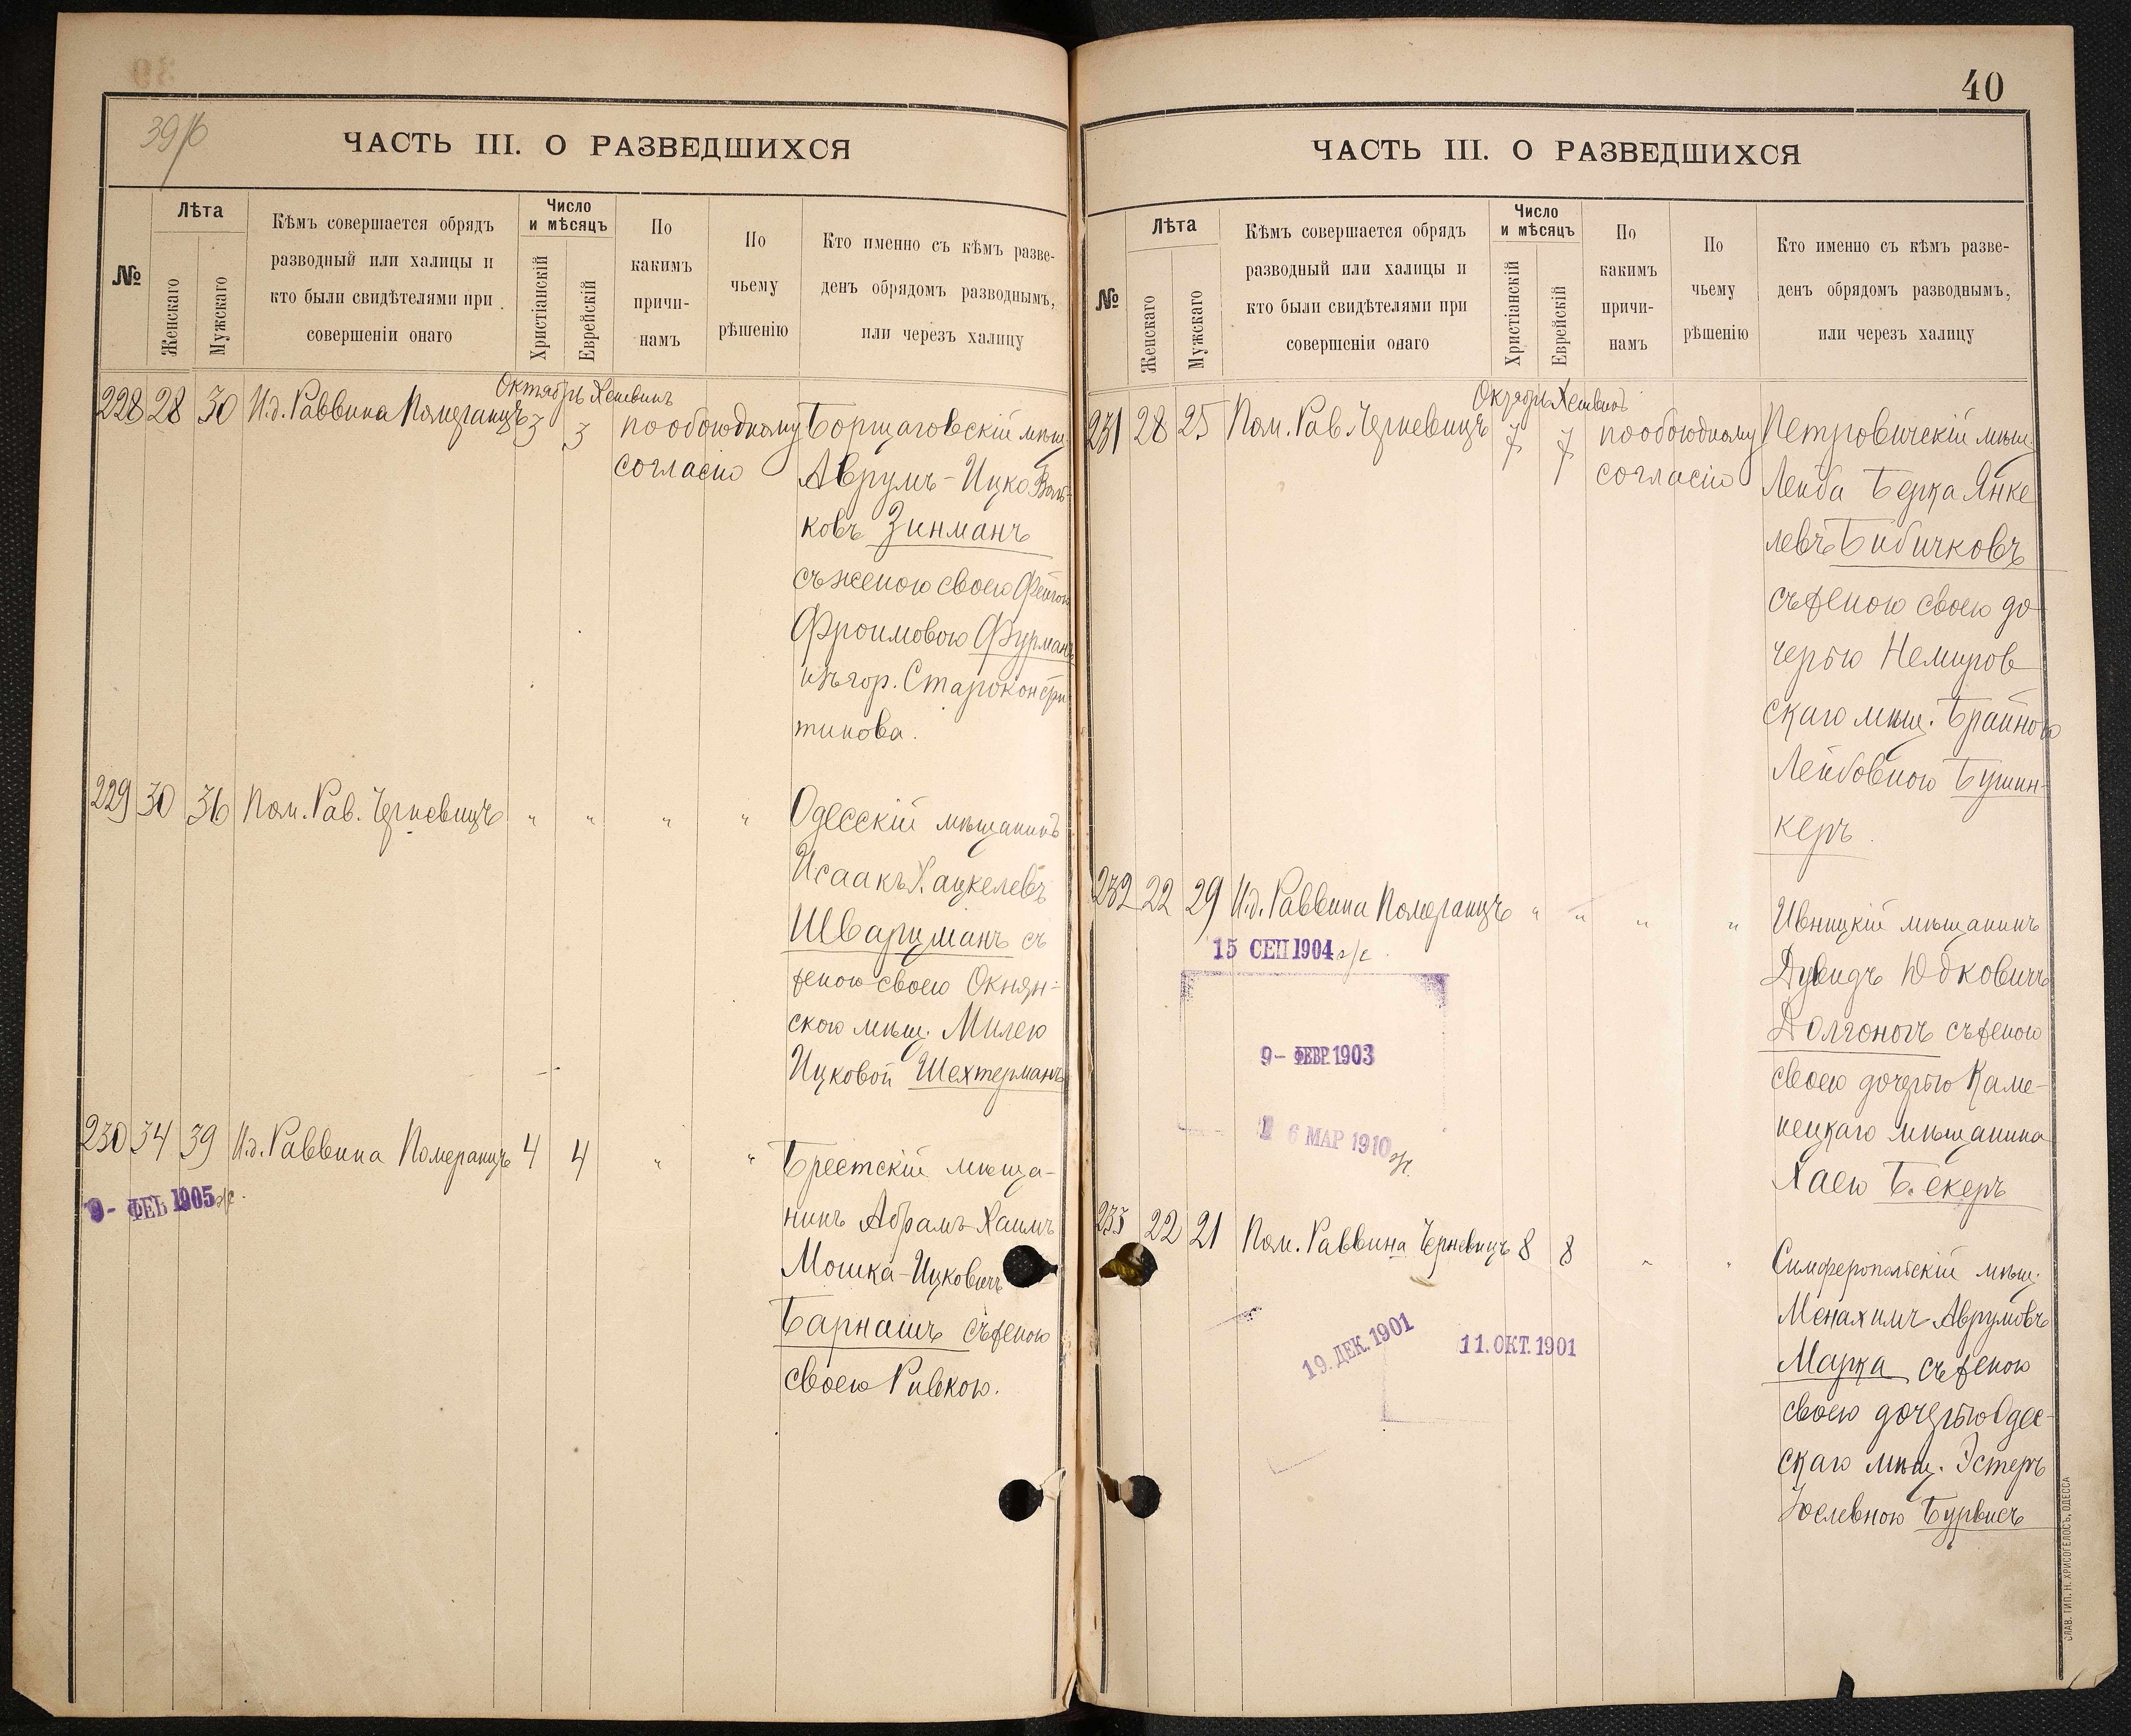 39/б
ЧАСТЬ III. О РАЗВЕДШИХСЯ
№
Лѣта
Женскаго
Мужскаго
Кѣмъ совершается обрядъ
разводный или халицы и
кто были свидѣтелями при
совершеніи онаго
Число
и мѣсяцъ
Христіанскій
Еврейскій
По
какимъ
причи-
намъ
По
чьему
рѣшенію
Кто именно съ кѣмъ разве-
денъ обрядомъ разводнымъ,
или черезъ халицу
Октябрь Хешвинъ
228 28 30 И.д. Раввина Померанцъ 3 3 по обоюдному
согласію
Борщаговскій мѣщ.
Аврумъ-Ицко Воль-
ковъ Зинманъ
съ женою своею Фейгою
Фроимовою Фурманъ
изъ гор. Староконстан
тинова.
229 30 36 Пом. Рав. Черневицъ " " " "
Одесскій мѣщанинъ
Исаакъ Хацкелевъ
Шварцманъ съ
женою своею Окнян-
скою мѣщ. Милею
Ицковой Шехтерманъ
230 34 39 И.д. Раввина Померанцъ 4 4 " "
9- ФЕВ 1905 г/с.
Брестскій мѣща-
нинъ Абрамъ-Хаимъ
Мошка-Ицковичъ
Барнашъ съ женою
своею Ривкою.
40
ЧАСТЬ III. О РАЗВЕДШИХСЯ
№
Лѣта
Женскаго
Мужскаго
Кѣмъ совершается обрядъ
разводный или халицы и
кто были свидѣтелями при
совершеніи онаго
Число
и мѣсяцъ
Христіанскій
Еврейскій
По
какимъ
причи-
намъ
По
чьему
рѣшенію
Кто именно съ кѣмъ разве-
денъ обрядомъ разводнымъ,
или черезъ халицу
Октябрь Хешвинъ
231 28 25 Пом. Рав. Черневицъ 7 7 по обоюдному
согласію
Петровичскій мѣщ.
Лейба Берка Янке
левъ Бибичковъ
съ женою своею до
черью Немиров
скаго мѣщ. Брайною
Лейбовною Бушин-
керъ
232 22 29 И.д. Раввина Померанцъ " " " "
15 СЕП 1904 г/с.
9- ФЕВР. 1903
6 МАР 1910
Ивницкій мѣщанинъ
Дувидъ Юдковичъ
Долгоногъ съ женою
своею дочерью Каме-
нецкаго мѣщанина
Хаею Бекеръ
233 22 21 Пом. Раввина Черневицъ 8 8 " "
19. ДЕК. 1901
11. ОКТ. 1901
Симферопольскій мѣщ.
Менахимъ Аврумовъ
Марка съ женою
своею дочерью Одес-
скаго мѣщ. Эстеръ
Іоселевною Бурвисъ
СЛАВ. ТИП. Н. ХРИСОГЕЛОСЪ, ОДЕССА